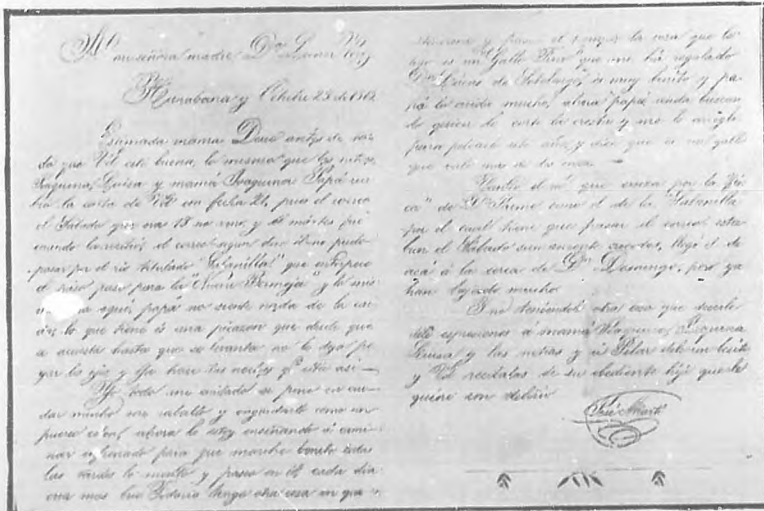 A mi señora madre Dª Leonor Pérez
Hanabana y Octubre 23 de 1862
Estimada mamá: Deseo antes de
todo que Vd esté buena, lo mismo que las niñas,
Joaquina, Luisa y mamá Joaquina. Papá reci-
bió la carta de Vd con fecha 21, pues el correo
del Sábado que era 18 no vino, y el mártes fué
cuando la recibió; el correo no pudo
pasar por el río titulado "Sabanilla" que entorpece
el paso para la "Nueva Bermeja" y lo mis-
mo para aquí, papá no siente nada de la
caída, lo que tiene es una picazon que desde que
se acuesta hasta que se levanta no le deja pe-
gar los ojos, y ya hace tres noches que está así
Ya todo mi cuidado se pone en cui-
dar mucho mi caballo y engordarlo como un
puerco cebon, ahora lo estoy enseñando á cami-
nar enfrenado para que marche bonito, todas
las tardes lo monto y paseo en él, cada dia
cria mas brios. Todavía tengo otra cosa en que
y pasar el tiempo, la cosa que le
digo es un "Gallo Fino" que me ha regalado
Dn Lucas de Sotolongo, es muy bonito y pa-
pá lo cuida mucho, ahora papá anda buscan-
do quien le corte la cresta y me lo arregle
para pelearlo este año, y dice que es un gallo
que vale mas de dos onzas.
Tanto el rio que cruza por la "fin-
ca" de Dn Jaime como el de la "Sabanilla"
por el cual tiene que pasar el correo, esta-
ban el Sábado sumamente crecidos, llegó el de
acá á la cerca de Dn Domingo, pero ya
han bajado mucho
Y no teniendo otra cosa que decirle
déle espresiones á mamá Joaquina, Joaquina
Luisa y las niñas y á Pilar déle un besito
y Vd recíbalas de su obediente hijo que le
quiere con delirio
José Martí